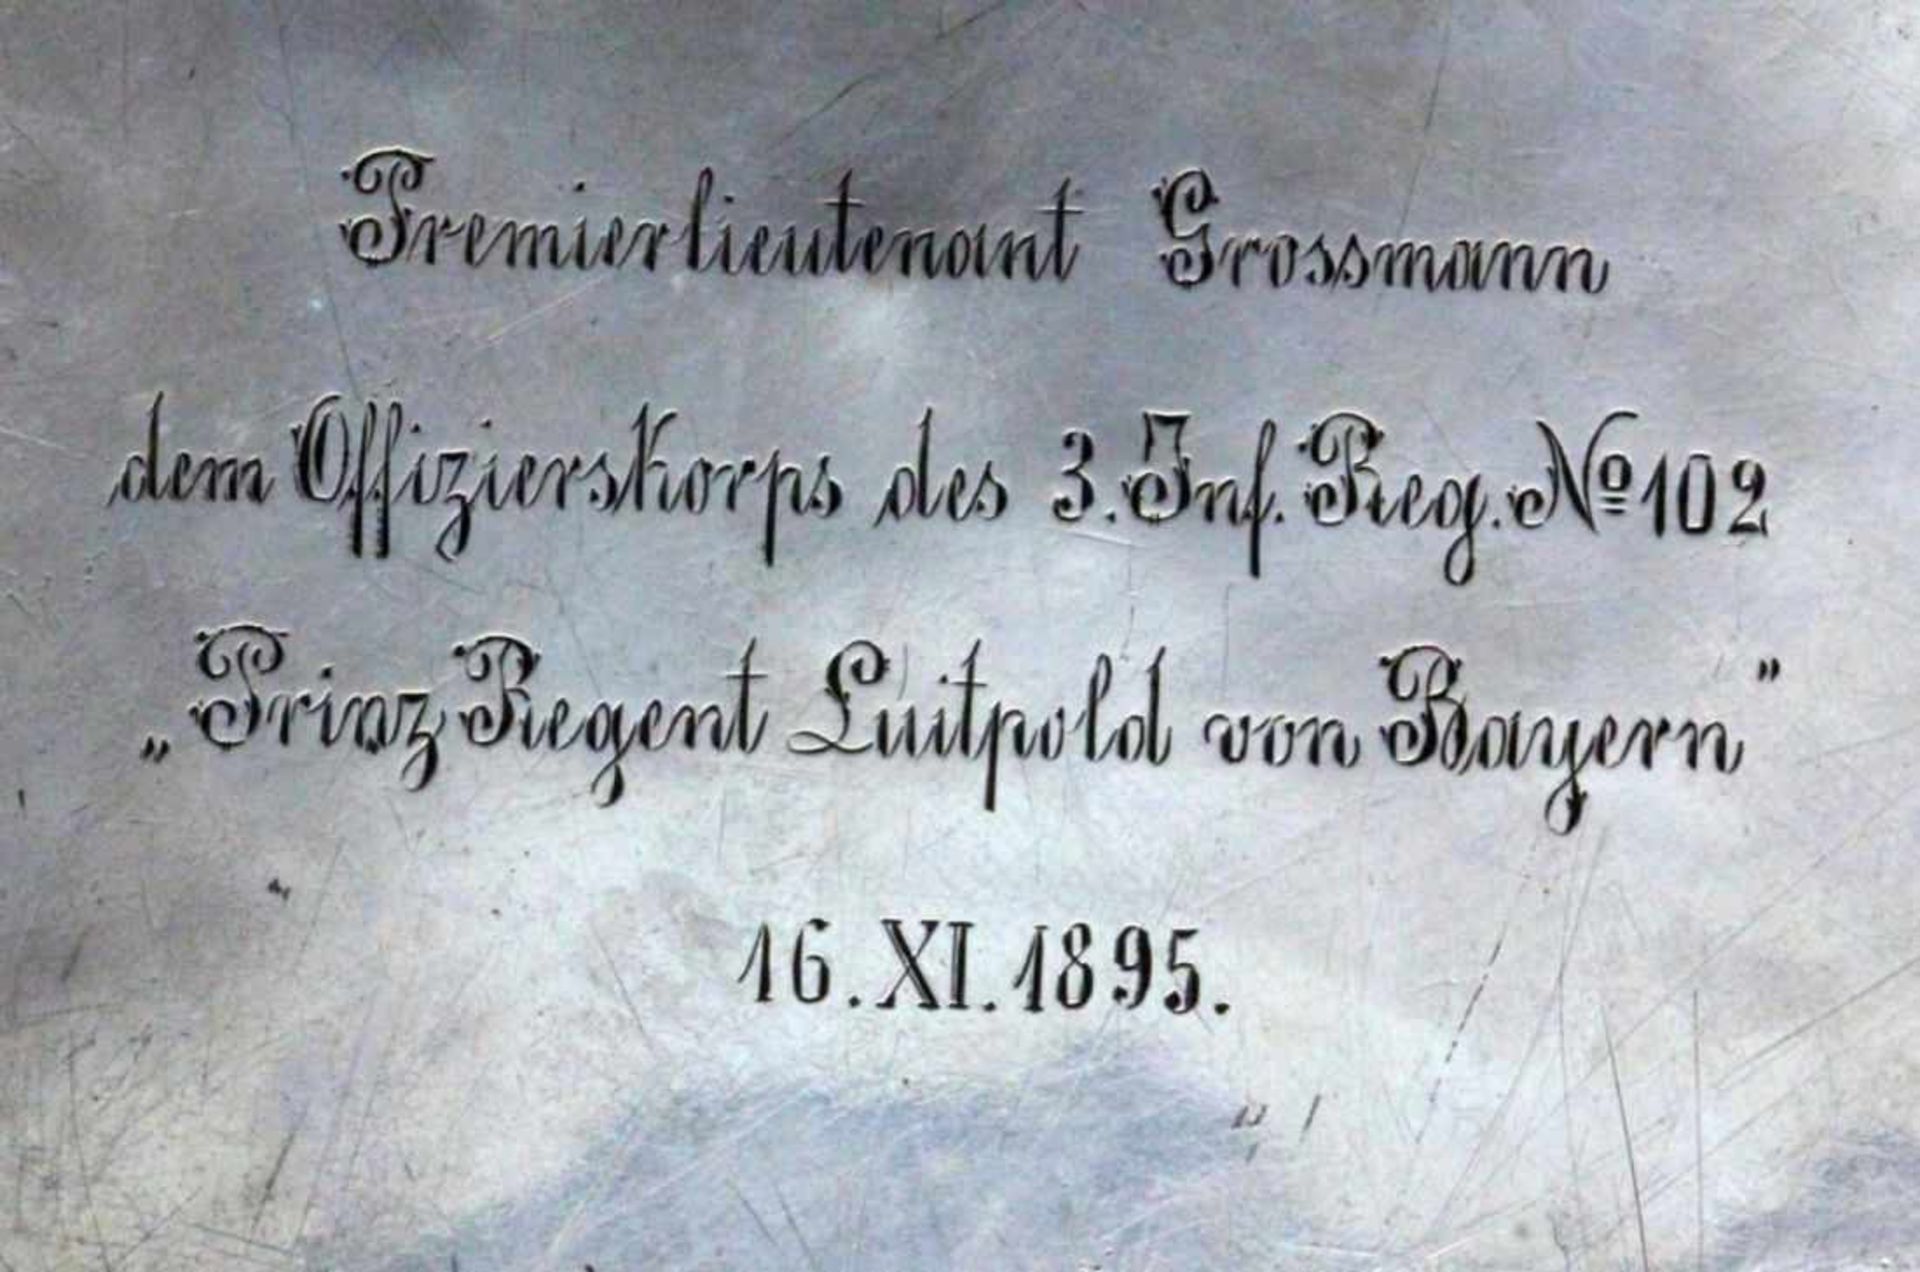 Premierlieutenant Grossmann
dem Offizierskorps des 3. Inf. Reg. No 102
„Prinz Regent Luitpold von Bayern”
16. XI. 1895.